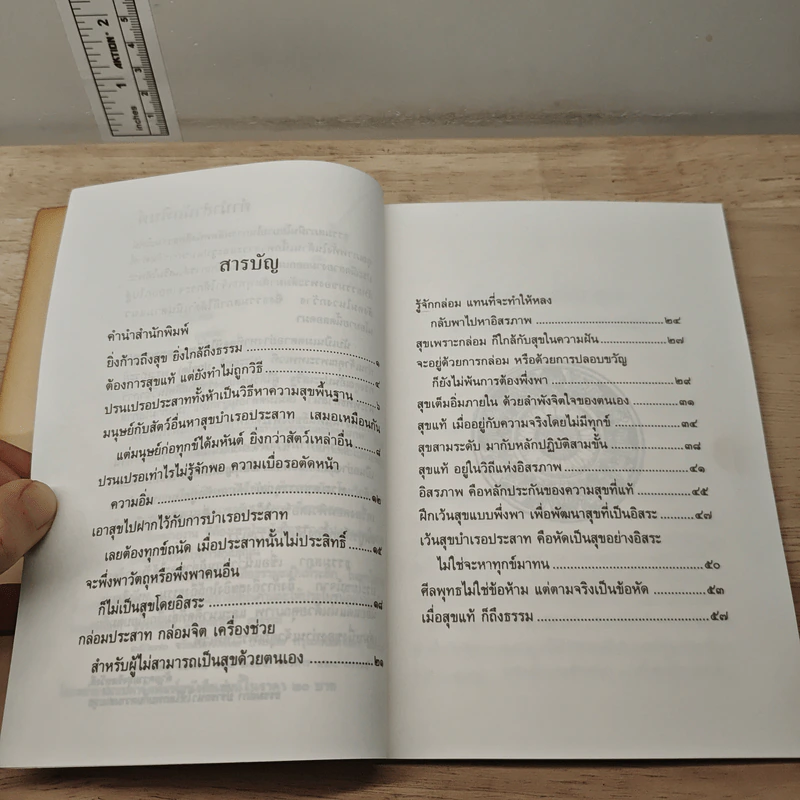 สารบัญ
คำนำสำนักพิมพ์
ยิ่งก้าวถึงสุข ยิ่งใกล้ถึงธรรม ........ ๑
ต้องการสุขแท้ แต่ยังทำไม่ถูกวิธี ........ ๕
ปรนเปรอประสาททั้งห้าเป็นวิธีหาความสุขพื้นฐาน ........ ๖
มนุษย์กับสัตว์อื่นหาสุขบำเรอประสาท เสมอเหมือนกัน
แต่มนุษย์ก่อทุกข์ได้มหันต์ ยิ่งกว่าสัตว์เหล่าอื่น ........ ๘
ปรนเปรอเท่าไรไม่รู้จักพอ ความเบื่อรอตัดหน้า
ความอิ่ม ........ ๑๒
เอาสุขไปฝากไว้กับการบำเรอประสาท
เลยต้องทุกข์ถนัด เมื่อประสาทนั้นไม่ประสิทธิ์ ........ ๑๕
จะพึ่งพาวัตถุหรือพึ่งพาคนอื่น
ก็ไม่เป็นสุขโดยอิสระ ........ ๑๘
กล่อมประสาท กล่อมจิต เครื่องช่วย
สำหรับผู้ไม่สามารถเป็นสุขด้วยตนเอง ........ ๒๑
รู้จักกล่อม แทนที่จะทำให้หลง
กลับพาไปหาอิสรภาพ ........ ๒๔
สุขเพราะกล่อม ก็ใกล้กับสุขในความฝัน ........ ๒๗
จะอยู่ด้วยการกล่อม หรือด้วยการปลอบขวัญ
ก็ยังไม่พ้นการต้องพึ่งพา ........ ๒๙
สุขเต็มอิ่มภายใน ด้วยลำพังจิตใจของตนเอง ........ ๓๑
สุขแท้ เมื่ออยู่กับความจริงโดยไม่มีทุกข์ ........ ๓๔
สุขสามระดับ มากับหลักปฏิบัติสามขั้น ........ ๓๘
สุขแท้ อยู่ในวิถีแห่งอิสรภาพ ........ ๔๑
อิสรภาพ คือหลักประกันของความสุขที่แท้ ........ ๔๕
ฝึกเว้นสุขแบบพึ่งพา เพื่อพัฒนาสุขที่เป็นอิสระ ........ ๔๗
เว้นสุขบำเรอประสาท คือหัดเป็นสุขอย่างอิสระ
ไม่ใช่จะหาทุกข์มาทน ........ ๕๐
ศีลพุทธไม่ใช่ข้อห้าม แต่ตามจริงเป็นข้อหัด ........ ๕๓
เมื่อสุขแท้ ก็ถึงธรรม ........ ๕๗
inches
1
2
AKTION
1
2
3
4
5